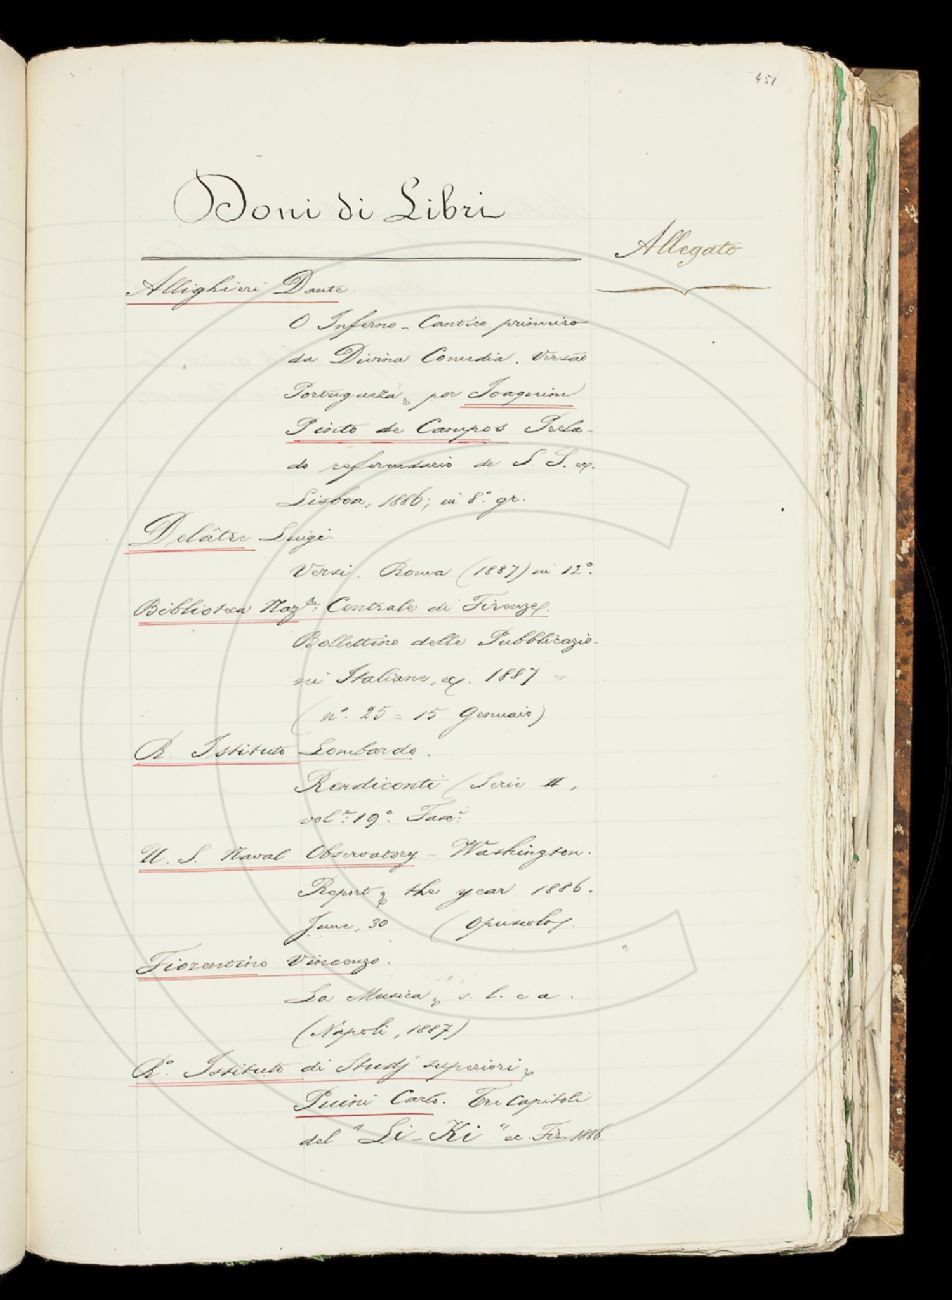 451
Doni di Libri
Allegato
Allighieri Dante.
O Inferno - Cantico primeiro
da Divina Comedia. Versão
Portugueza, por Joaquim
Pinto de Campos Prela-
do referendario de S. S.
Lisboa, 1886; in 8.° gr.
Delâtre Luigi
Versi. Roma (1887) in 12°.
Biblioteca Naz.le Centrale di Firenze.
Bollettino delle Pubblicazio-
ni Italiane, 1887 =
(n.° 25 = 15 Gennaio)
R. Istituto Lombardo.
Rendiconti (Serie II,
vol.e 19.° Fasc.
U. S. Naval Observatory - Washington.
Report the year 1886.
June, 30 (Opuscolo).
Fiorentino Vincenzo.
La Musica, s. l. e a.
(Napoli, 1887)
R.° Istituto di Studj superiori
Puini Carlo. Tre Capitoli
del "Li-Ki" ec. Fir. 1886